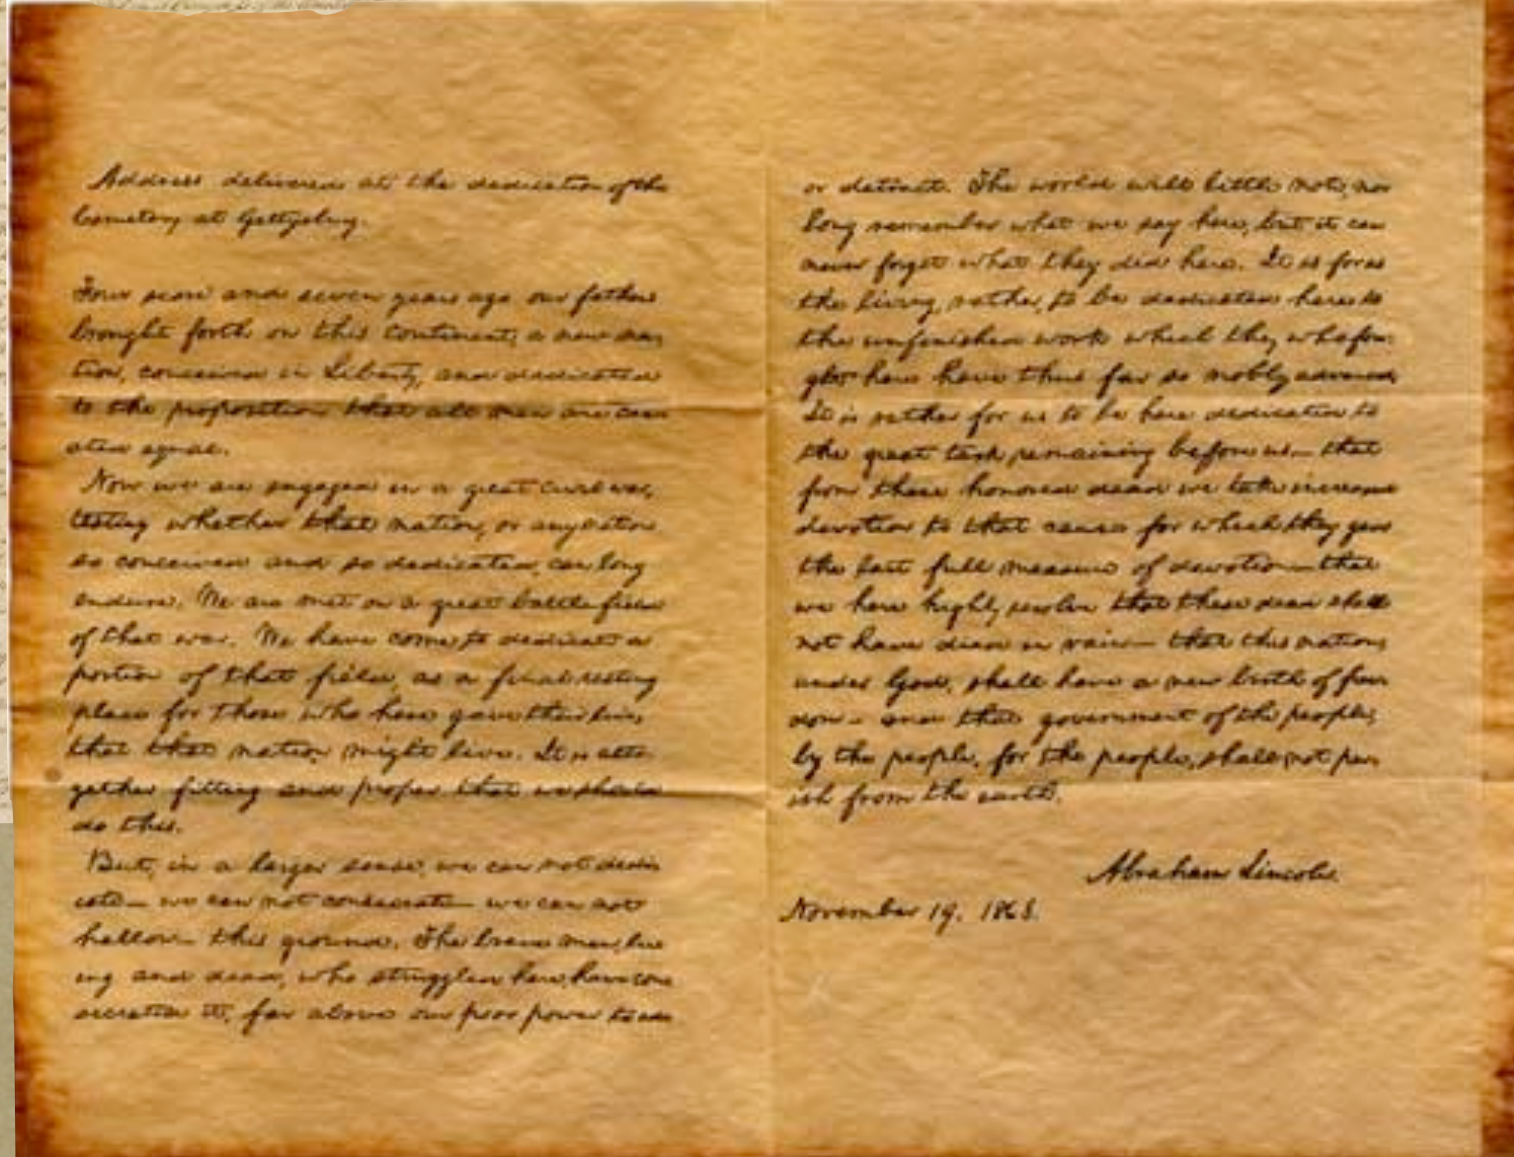 Address delivered at the dedication of the
Cemetery at Gettysburg.
Four score and seven years ago our fathers
brought forth on this continent, a new na-
tion, conceived in Liberty, and dedicated
to the proposition that all men are cre-
ated equal.
Now we are engaged in a great civil war,
testing whether that nation, or any nation
so conceived and so dedicated, can long
endure. We are met on a great battle-field
of that war. We have come to dedicate a
portion of that field, as a final resting
place for those who here gave their lives,
that that nation might live. It is alto-
gether fitting and proper that we should
do this.
But, in a larger sense, we can not dedi-
cate— we can not consecrate— we can not
hallow— this ground. The brave men, liv-
ing and dead, who struggled here, have con-
secrated it, far above our poor power to add
or detract. The world will little note, nor
long remember what we say here, but it can
never forget what they did here. It is for us
the living, rather, to be dedicated here to
the unfinished work which they who fou-
ght here have thus far so nobly advanced.
It is rather for us to be here dedicated to
the great task remaining before us— that
from these honored dead we take increased
devotion to that cause for which they gave
the last full measure of devotion— that
we here highly resolve that these dead shall
not have died in vain— that this nation,
under God, shall have a new birth of free-
dom— and that government of the people,
by the people, for the people, shall not per-
ish from the earth.
Abraham Lincoln.
November 19. 1863.